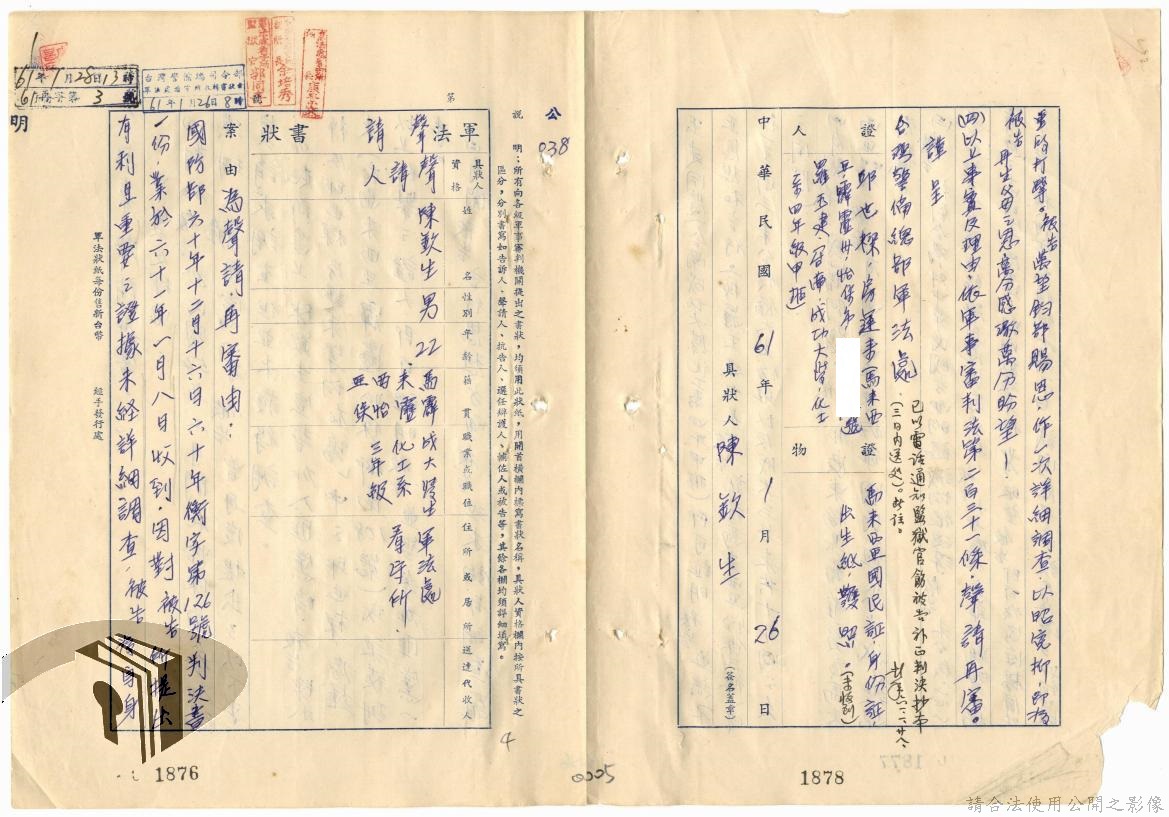 公
038
說明：所有向各級軍事審判機關提出之書狀，均須用此狀紙，用開首橫欄內標寫書狀名稱，具狀人資格欄內按所具書狀之
區分，分別書寫如告訴人、聲請人、抗告人、選任辯護人、輔佐人或被告等，其餘各欄均須詳細填寫。
第
號
軍法聲請書狀
具狀人
資格
姓名
性別
年齡
籍貫
職業或職位
住所或居所
送達代收人
聲請人
陳欽生
男
22
馬來西亞
霹靂怡保
成大學生
化工系
三年級
軍法處
看守所
案由
為聲請再審由：
國防部六十年十二月十六日六十年衡字第126號判決書
一份，業於六十一年一月八日收到，因對被告所提出
有利且重要之證據未經詳細調查，被告
台灣警備總司令部
61年1月26日8時
61年1月28日13時
3
號
明
軍法狀紙每份售新台幣
經手發行處
4
1876
打擊。被告懇望鈞部賜恩，作一次詳細調查，以昭冤抑，即為
被告再生父母之恩萬分感激萬分盼望！
(四)以上事實及理由，依軍事審判法第二百三十一條，聲請再審。
謹呈
台灣警備總部軍法處
已以電話通知監獄官飭被告補正判決抄本
（三日內送處）。附註。
證人
證物
馬來西亞國民証，身份証，
出生紙，護照。
羅玉
台南，成功大學化工
系四年級甲班
中華民國61年1月26日
具狀人
陳欽生
（簽名蓋章）
0005
1878
1877
請合法使用公開之影像